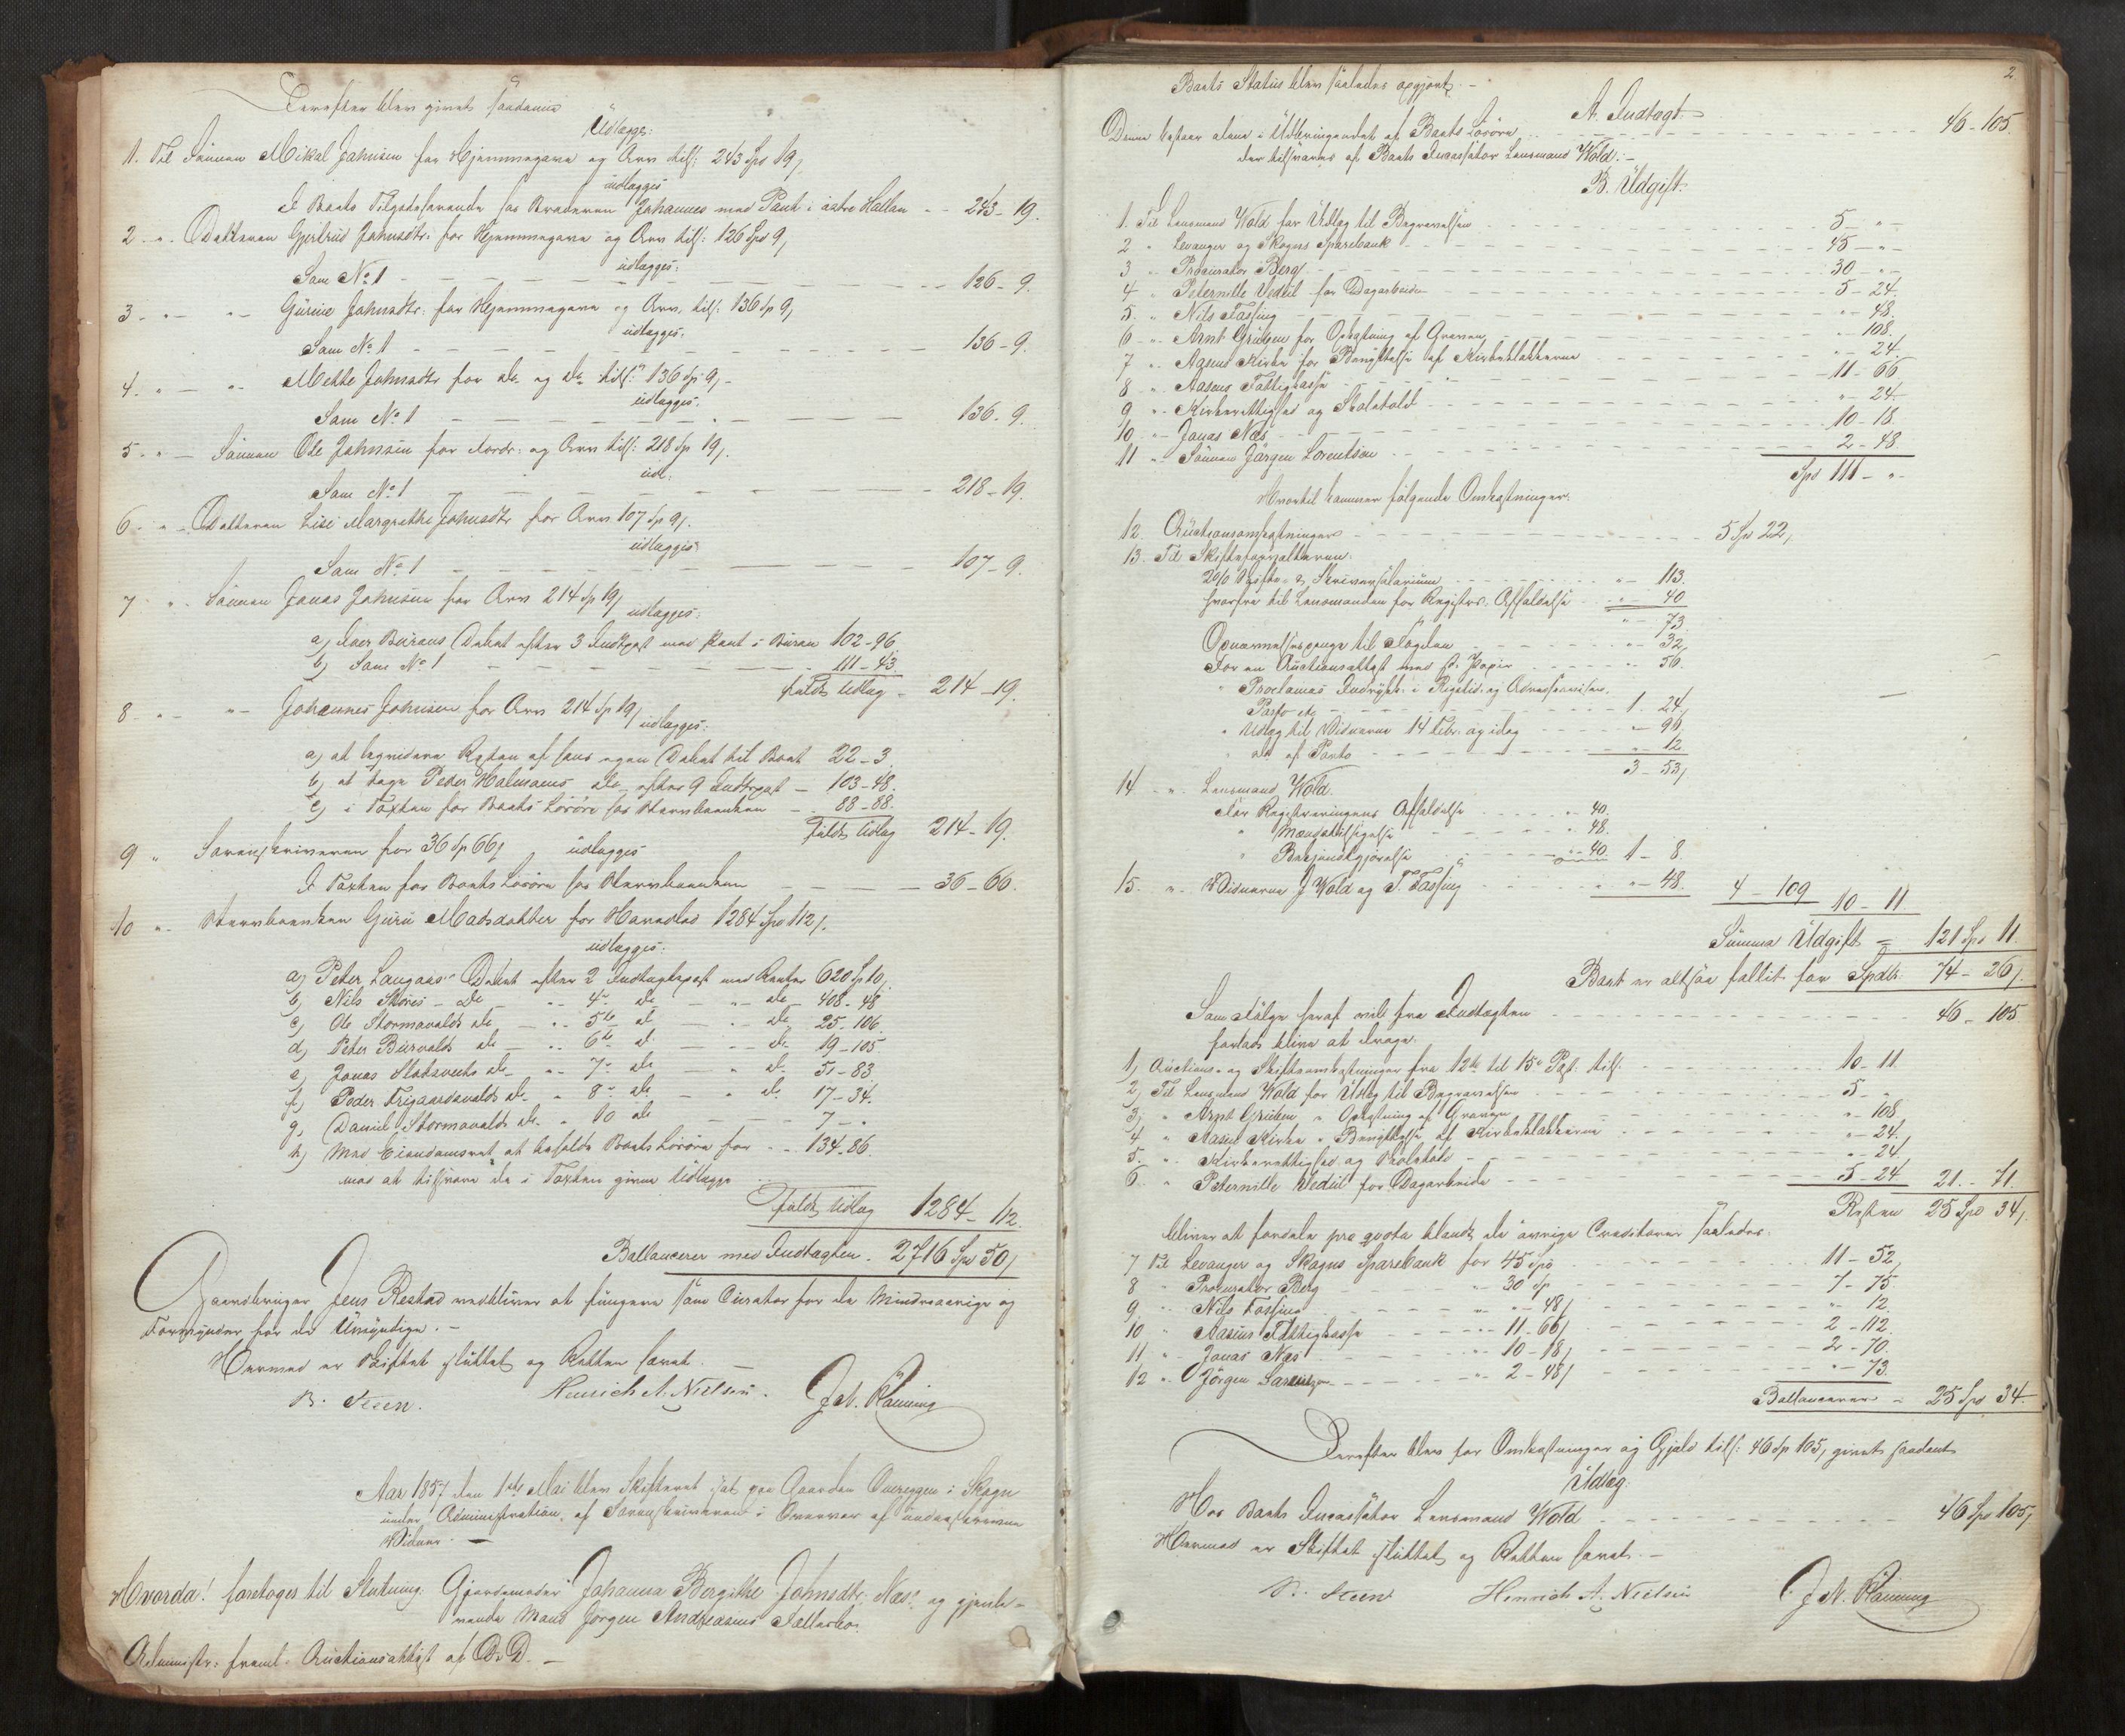 Derefter blev givet saadanne
Udlægge:
1. Til Sønnen Mikal Johnsen for Hjemmegave og Arv tils: 243 Spd 19,
udlægges
I Boets Tilgodehavende hos Broderen Johannes med Pant i østre Hallan - - 243 - 19.
2 - " - Datteren Gjertrud Johnsdtr. for Hjemmegave og Arv tils: 126 Spd 9,
udlægges:
Som No 1 - 126 - 9.
3 - " - " - Gurine Johnsdtr: for Hjemmegave og Arv, tils: 136 Sp 9,
udlægges.
Som No 1 - 136 - 9.
4. " - " - Mette Johnsdtr for do og do tils: 136 Sp 9, -
udlægges.
Som No 1 - 136 - 9.
5 - " - Sønnen Ole Johnsen for Fordr: og Arv tils: 218 Sp 19,
udl:
Som No 1 - 218 - 19.
6 - " - Datteren Lise Margrethe Johnsdtr for Arv 107 Sp 9,
udlægges
Som No 1 - 107 - 9.
7 - " - Sønnen Jonas Johnsen for Arv 214 Sp 19,
udlægges:
a, Iver Burans Debet efter 3 Indtpost med Pant i Buran 102 - 96
b, Som No 1 - 111 - 43
fuldt Udlæg - 214 - 19.
8 - " - " - Johannes Johnsen for Arv 214 Sp 19,
udlægges:
a, at liqvidere Resten af hans egen Debet til Boet 22 - 3
b, at tage Peder Halmaams do efter 9 Indtpost - 103 - 48.
c, i Taxten for Boets Løsøre hos Stervboenken - 88 - 88.
fuldt Udlæg 214 - 19.
9 " Sorenskriveren for 36 Sp 66, udlægges
I Taxten for Boets Løsøre hos Stervboenken - 36 - 66.
10 " - Stervboenken Guru Madsdatter for Hovedlod 1284 Spd 112,
udlægges:
a, Peter Laugaas' Debet efter 2 Indtægtspost med Renter 620 Sp 10,
b, Nils Skreis - do - " - 4de do - " - do 408 - 48
c, Ole Stormovalds do - " - 5te do - " - do 25 - 106.
d, Peter Burvalds do - " - 6te do - do 19 - 105
e, Jonas do - " - 7de do - " do 51 - 83
f, Peder Frigaardsvalds do " 8de do - " do 17 - 34.
g, Daniel Stormovalds do " 10 do - 7 - "
h, Med Eiendomsret at beholde Boets Løsøre for - 134 - 86.
mod at tilsvare de i Taxten givne Udlægge
fuldt Udlæg 1284 - 112.
Ballancerer med Indtægten. 2716 Spd 50,
Gaardbruger Jens Restad vedbliver at fungere som Curator for de Mindreaarige og
Formynder for de Umyndige. -
Hermed er Skiftet sluttet og Retten hævet. -
B. Steen. Henrich A. Nielsen. J. N. Klüwing
Aar 1857 den 1ste Mai blev Skifteret sat paa Gaarden Overeggen i Skogn
under Administration af Sorenskriveren i Overvær af underskrevne
Vidner. -
Hvorda! foretoges til Slutning Gjordemoder Johanna Bergitte Johnsdtr. Næs. og gjenle-
vende Mand Jørgen Andreasens Fællesbo.
Administr: freml. Auctionsattest af D. D. -
2
Boets Status blev saaledes opgjort -
A. Indtægt.
Denne bestaar alene i Udbringendet af Boets Løsøre - 46 - 105.
der tilsvares af Boets Incassator Lensmand Wold. -
B. Udgift.
1. Til Lensmand Wold for Udlæg til Begravelsen - 5 - " -
2 " Levanger og Skogns Sparebank - 45 - " -
3 " - Procurator Berg - 30 - " -
4 " Peternille Vedeil for Dagarbeide - 5 - 24.
5. " Nils Fossing - " - 48.
6 - " - Arnt Gruben for Opkastning af Graven - " - 108.
7 " - Aasens Kirke for Benyttelse af Kirkeklokkerne - " - 24.
8 " - Aasens Fattigkasse - 11 - 66
9 " - Kirkerettighed og Skoletold - " - 24.
10. " - Jonas Næs - 10 - 18.
11 " - Sønnen Jørgen Lorentsen - 2 - 48
Spd 111 - " -
Hvortil kommer følgende Omkostninger:
12. Auctionsomkostninger - 5 Spd 22,
13. Til Skifteforvalteren.
2 0/0 Skifte- & Skriversalarium - " - 113.
hvorfra til Lensmanden for Registr. Afholdelse - 40
" - 73
Opnævnelsespenge til Fogden - " - 32,
For en Auctionsattest med st. Papir - " - 56.
" Proclamas Indrykk. i Rigstid. og Adresseavisen,
Porto etc - 1. 24,
" Udlæg til Vidnerne 14 Febr. og idag - " - 96,
do af Porto - " - 12
3 - 53,
14 " - Lensmand Wold.
For Registreringens Afholdelse - " - 40.
" Mændstilsigelse - " - 48.
" Bekjendtgjørelse - " - 40. 1 - 8.
15. " - Vidnerne J Wold og T Fossing - " - 48. 4 - 109 10 - 11.
Summa Udgift = 121 Spd 11.
Boet er altsaa fallit for Spdlr: 74 - 26,
Som Følge heraf vil fra Indtægten - 46 - 105
forlods blive at drage.
1, Auctions- og Skifteomkostninger fra 12te til 15de Post. tils. - 10 - 11.
2, Til Lensmand Wold for Udlæg til Begravelsen - 5 - "
3, " Arnt Gruben " Opkastning af Graven - " - 108
4 " Aasens Kirke " Benyttelse af Kirkeklokkerne - " - 24.
5. " Kirkerettighed og Skoletold - " - 24.
6 " Peternille Vedeil for Dagarbeide - 5 - 24 21. - 71.
Resten 25 Spd 34,
bliver at fordele pro qvota blandt de øvrige Creditorer saaledes.
7 Til Levanger og Skogns Sparebank for 45 Spd - 11 - 52,
8 " Procurator Berg - " - 30 Sp - 7 - 75.
9. " Nils Fossing - " - 48, - " - 12.
10 " Aasens Fattigkasse - 11 - 66, - 2 - 112.
11 " - Jonas Næs - 10 - 18, - 2 - 70.
12 " - Jørgen - 2 - 48, - " - 73.
Ballancerer - 25 Spd 34.
Derefter blev for Omkostninger og Gjæld tils: 46 Sp 105, givet saadant
Udlæg.
Hos Boets Incassator Lensmand Wold - 46 Spd 105,
Hermed er Skiftet sluttet og Retten hævet. -
B. Steen Henrich A. Nielsen J. N. Klüwing